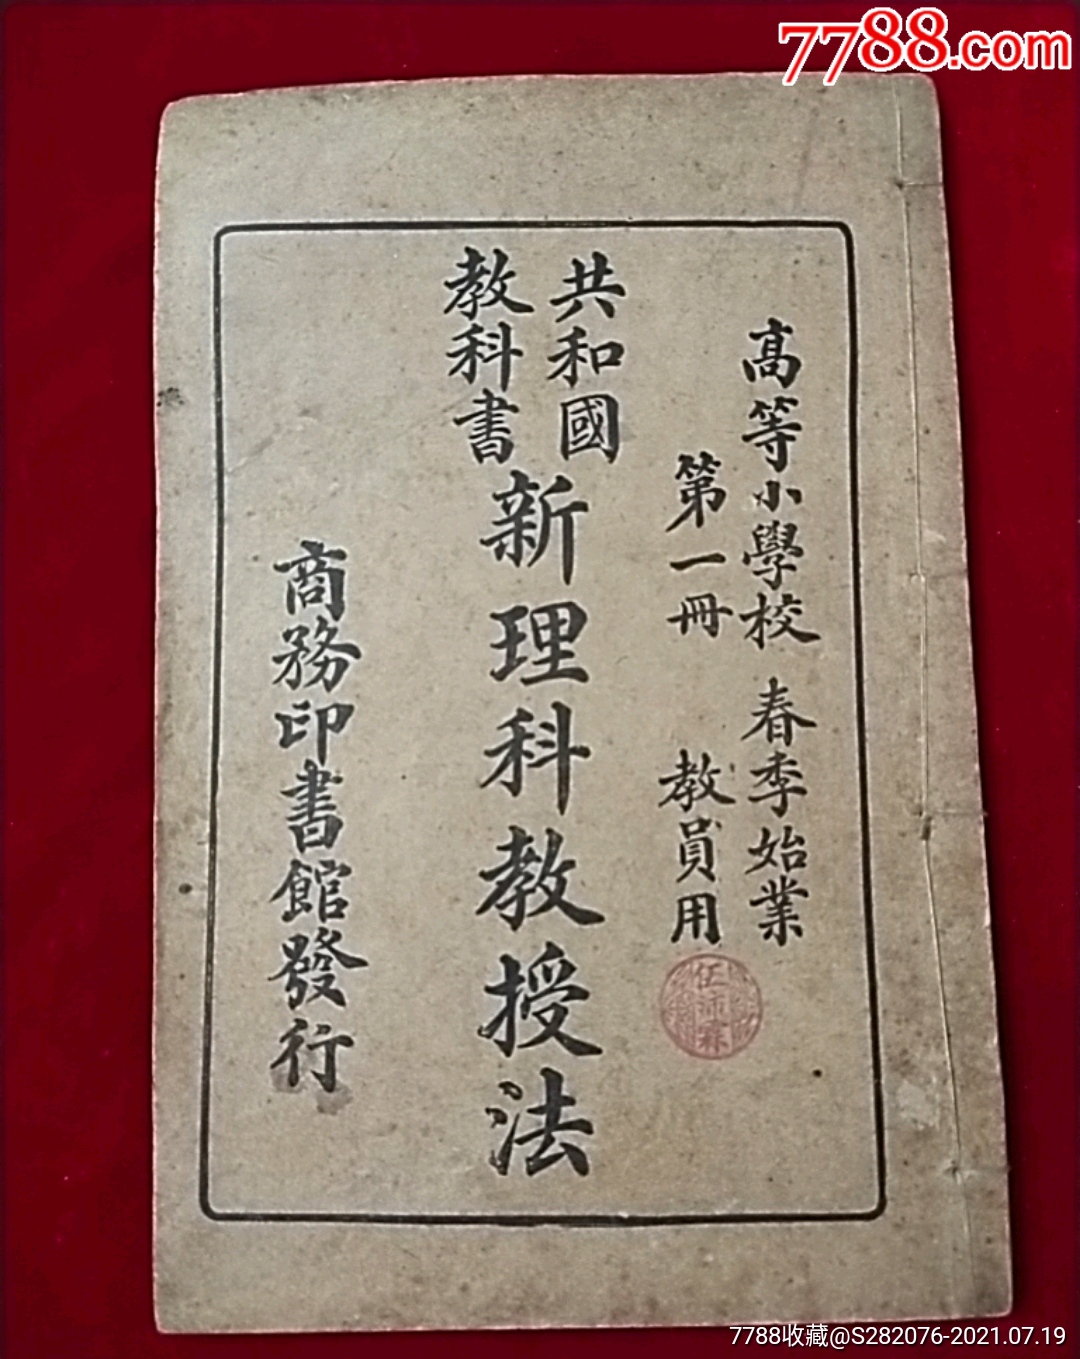 7788.com
高等小學校 春季始業
第一冊 教員用
共和國
教科書
新理科教授法
商務印書館發行
7788收藏@S282076-2021.07.19